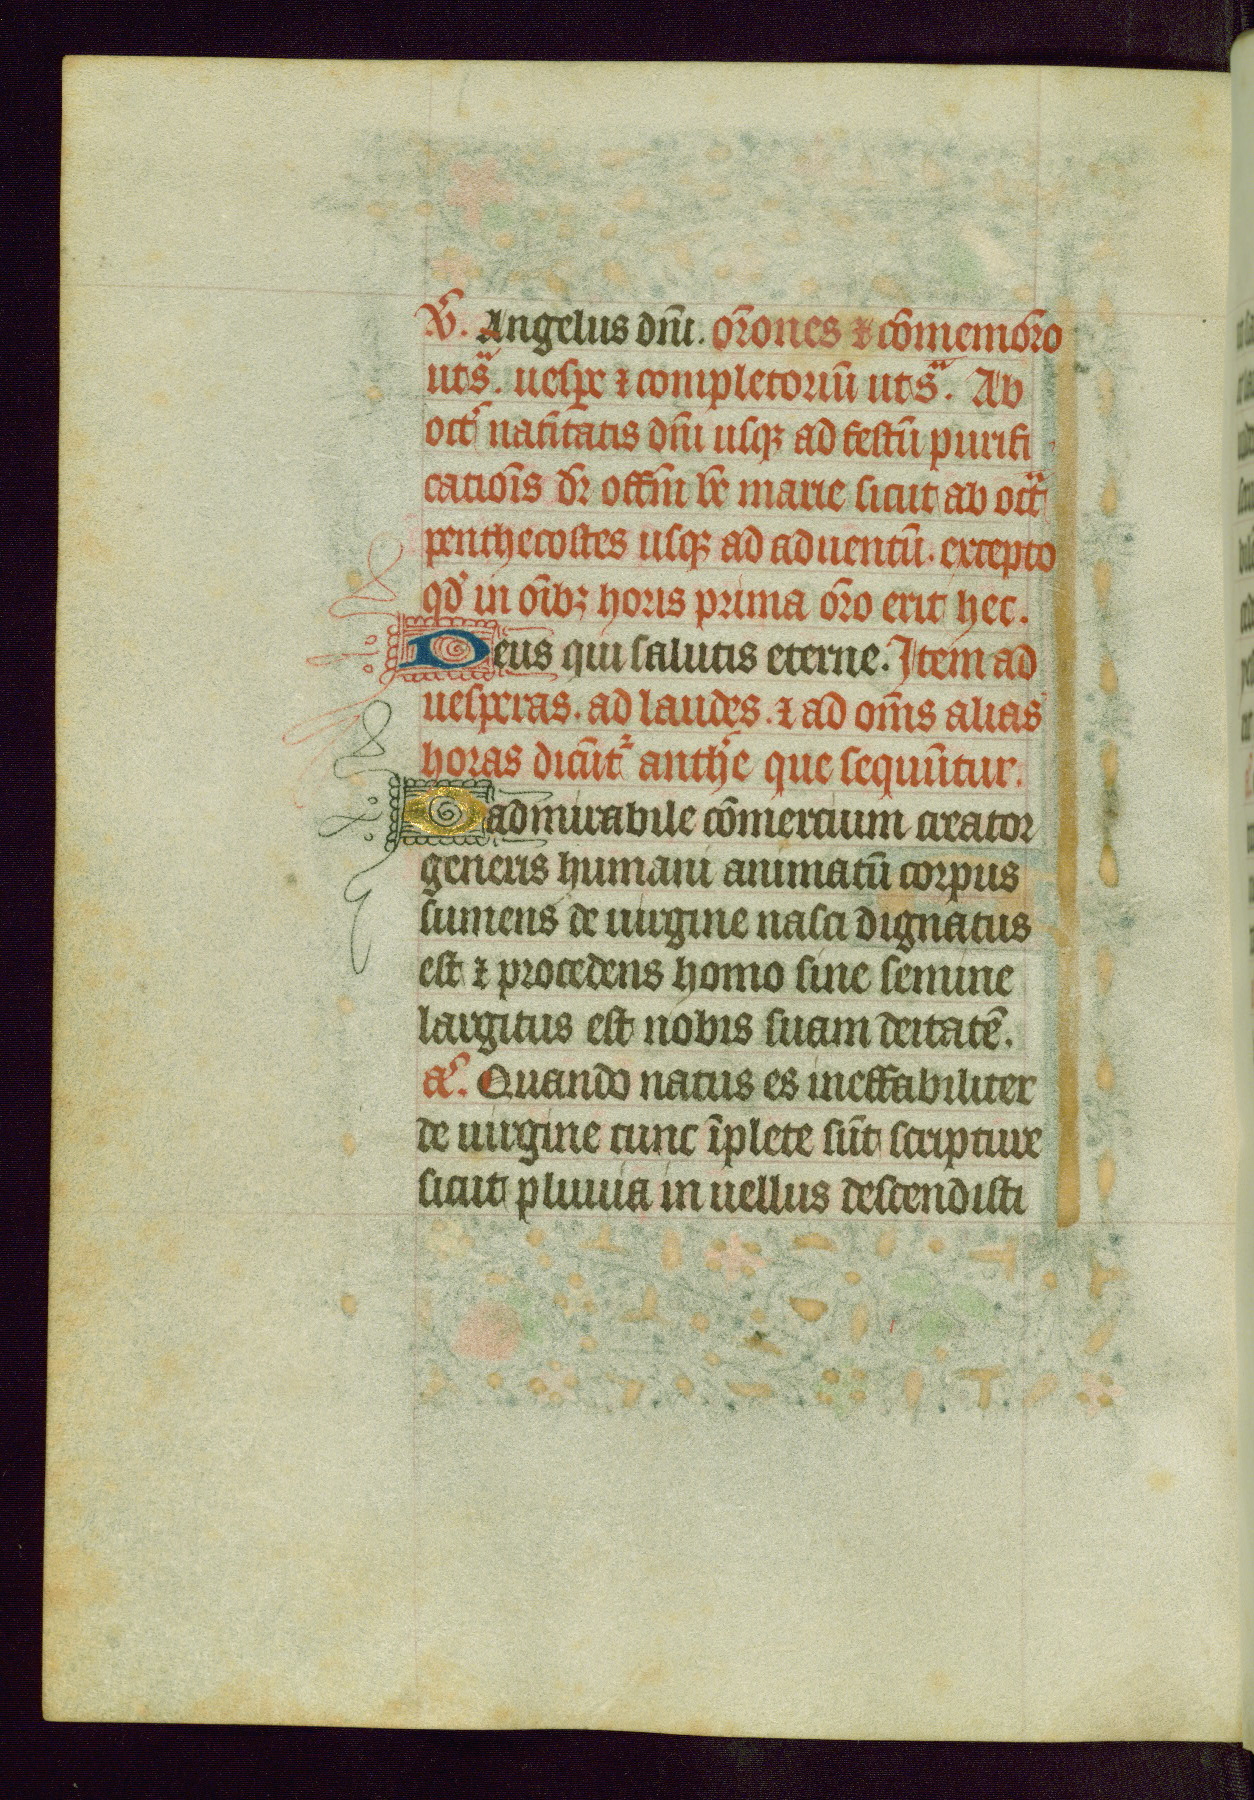 V̄. Angelus dñi. or̄ones ⁊ cōmemor̄o
utsͣ. uespe ⁊ completoriū utsͣ. Ab
oct̄ natiītatis dñi usqꝫ ad festū purifi
catioīs dr̄ offm̄ be marie sicut ab octͣ
penthecostes usqꝫ ad aduentū. excepto
qd̄ in oībꝫ horis prima or̄o erit hec.
Deus qui salutis eterne. Item ad
uesperas. ad laudes. ⁊ ad om̄s alias
horas dicūt᷑ anthe que sequūtur.
O admirabile cōmercium creator
generis humani animatū corpus
sumens de uirgine nasci dignatus
est ⁊ procedens homo sine semine
largitus est nobis suam deitatē.
a᷑. Quando natus es ineffabiliter
de uirgine tunc īplete sūt scripture
sicut pluuia in uellus descendisti